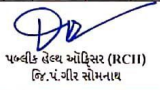 પબ્લીક હેલ્થ ઑફિસર (RCH)
જિ.પં.ગીર સોમનાથ